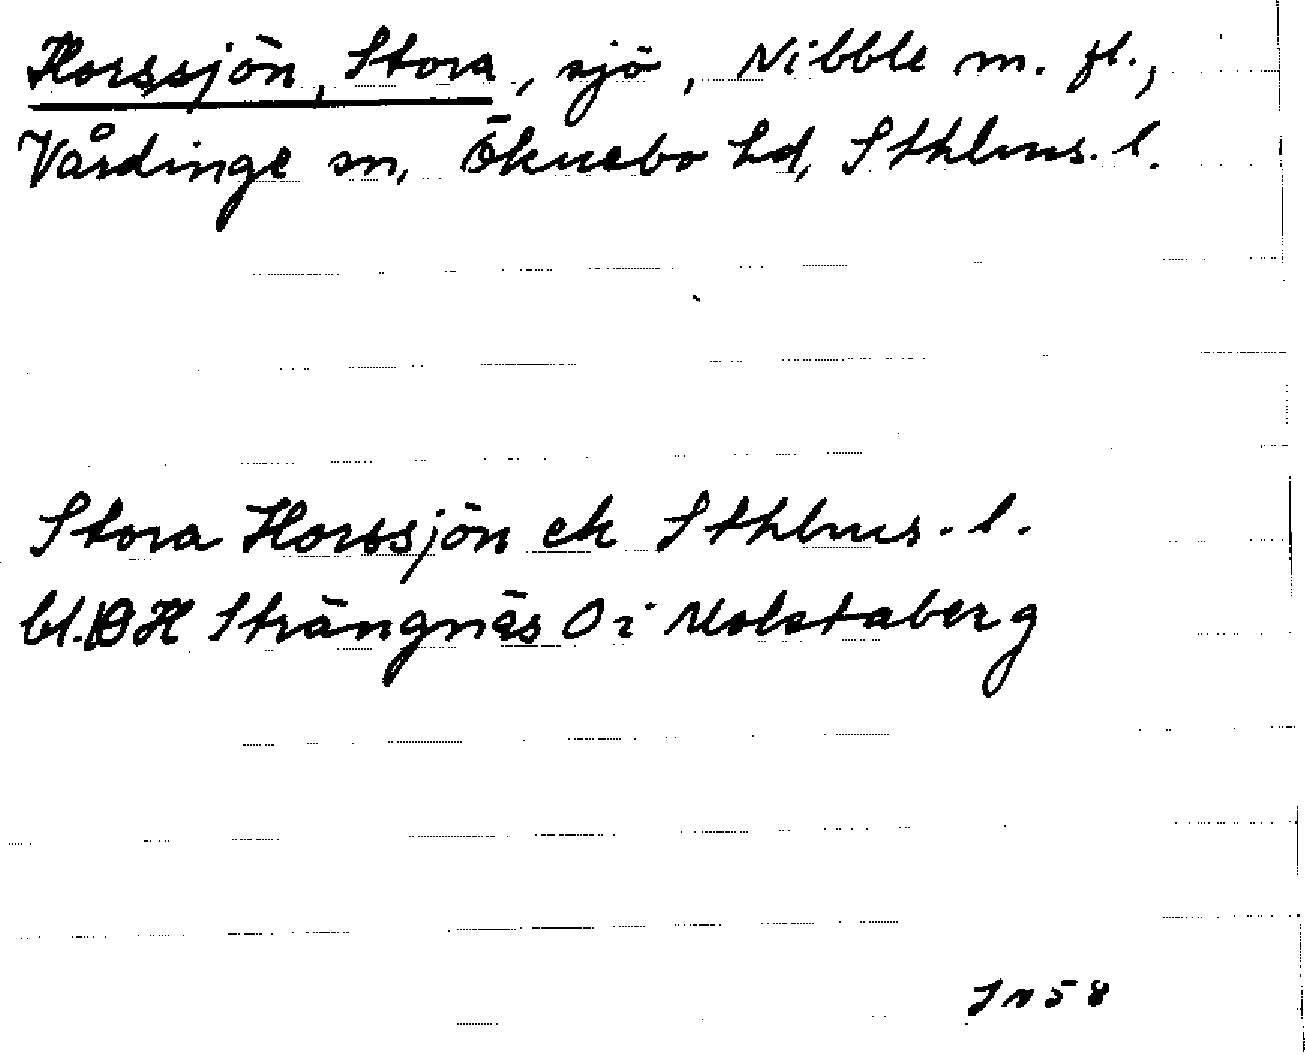 Horssjön, Stora, sjö, Nibble m. fl.,
Vårdinge sn, Öknebo hd, Sthlms. l.
Stora Horssjön ek Sthlms. l.
bl. BH Strängnäs O i Molstaberg
In 58